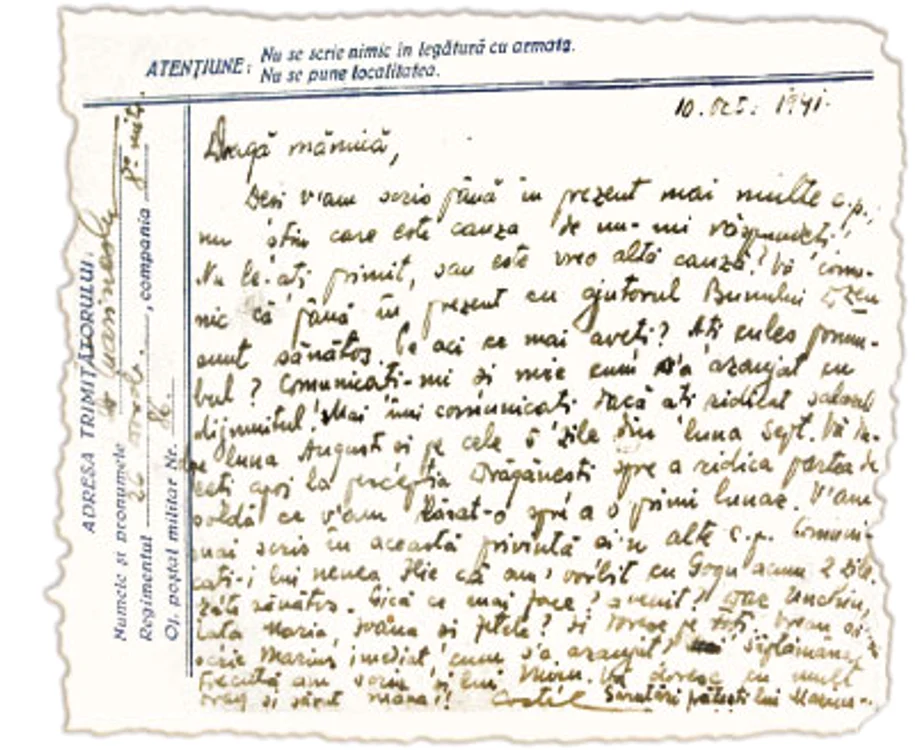 ATENȚIUNE: Nu se scrie nimic în legătură cu armata.
Nu se pune localitatea.
ADRESA TRIMIȚĂTORULUI:
Numele și pronumele
Regimentul 26 , compania 8
Of. poștal militar Nr. 86
10. Oct. 1941.
Dragă mămică,
Deși v'am scris până în prezent mai multe c.p.,
nu știu care este cauza de nu-mi răspundeți!
Nu le-ați primit, sau este vreo altă cauză? Vă comu-
nic că până în prezent cu ajutorul Bunului
sunt sănătos. Pe aci ce mai aveți? Ați cules porum-
bul? Comunicați-mi și mie cum s'a aranjat cu
dijmuitul! Mai îmi comunicați dacă ați ridicat
pe luna August și pe cele 5 zile din luna Sept. Vă
apoi la percepția Drăgănești spre a ridica partea de
soldă ce v'am lăsat-o spre a o primi lunar. V'am
mai scris în această privință și'n alte c.p. Comuni-
cați-i lui nenea Ilie că am vorbit cu Gogu acum 2 zile.
sănătos. Gică ce mai face? a venit?
Maria, Ioana și fetele? Vreau
scrie Marius imediat, cum s'a aranjat? săptămâna
trecută am scris și lui Vă doresc cu mult
drag și sărut mâna!! Costel Sărutări lui Marius